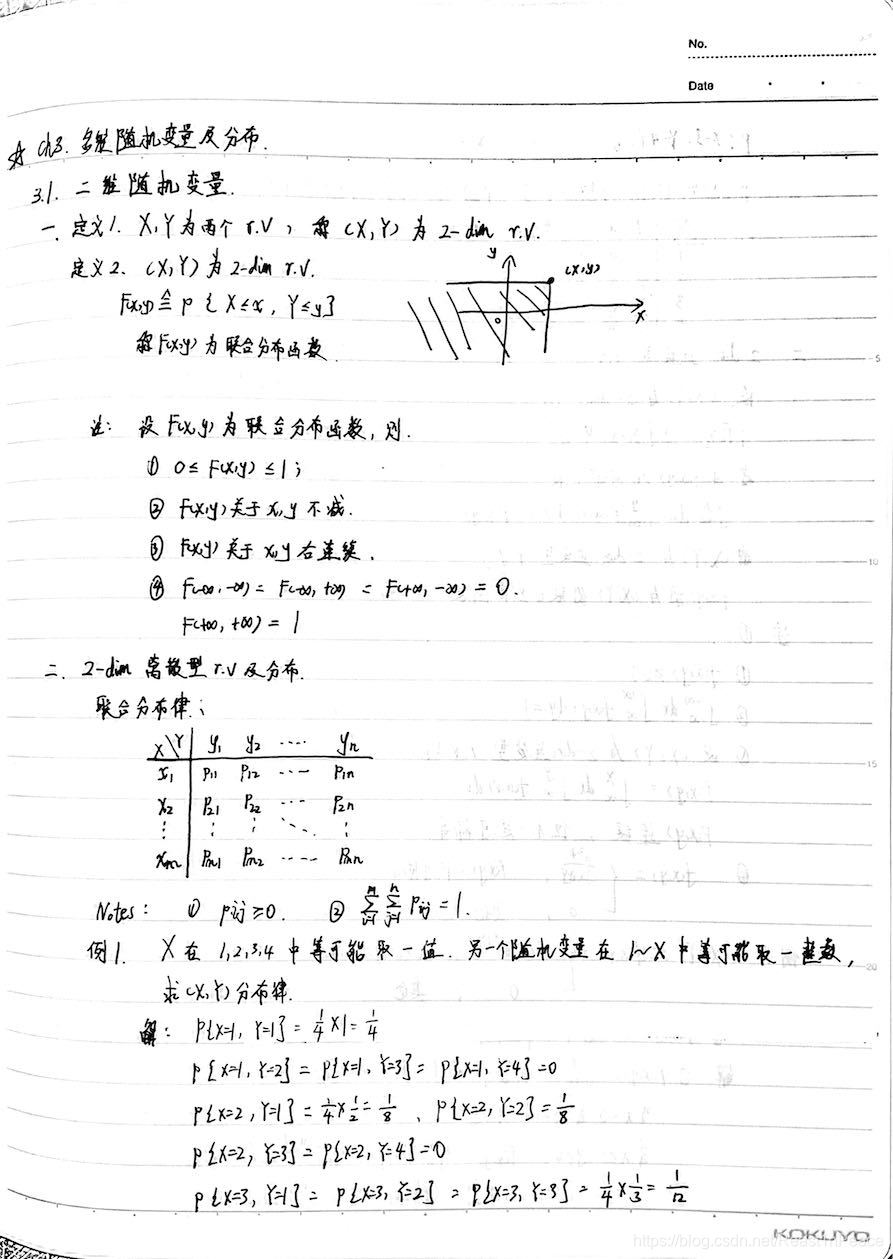 No.
Date
☆ Ch3. 多维随机变量及分布.
3.1. 二维随机变量.
一. 定义1. X,Y为两个 r.v, 称 (X,Y) 为 2-dim r.v.
定义2. (X,Y)为2-dim r.v.
y
(x,y)
F(x,y) ≙ P{X≤x, Y≤y}
0
x
称F(x,y)为联合分布函数.
5
注: 设 F(x,y)为联合分布函数, 则.
① 0≤F(x,y)≤1;
② F(x,y)关于x,y不减.
③ F(x,y)关于x,y右连续.
10
④ F(-∞,-∞) = F(-∞,+∞) = F(+∞,-∞) = 0.
F(+∞,+∞) = 1
二. 2-dim 离散型 r.v 及分布.
联合分布律:
X\Y y₁ y₂ ···· yn
15
x₁ P₁₁ P₁₂ ···· P₁n
x₂ P₂₁ P₂₂ ···· P₂n
⋮ ⋮ ⋮ ⋱ ⋮
xm Pm1 Pm2 ···· Pmn
Notes: ① pij≥0. ② ∑(i=1→m) ∑(j=1→n) Pij = 1.
例1. X在1,2,3,4中等可能取一值. 另一个随机变量在1~X中等可能取一整数,
20
求(X,Y)分布律.
解: P{X=1, Y=1} = 1/4 × 1 = 1/4
P{X=1, Y=2} = P{X=1, Y=3} = P{X=1, Y=4} = 0
P{X=2, Y=1} = 1/4 × 1/2 = 1/8 , P{X=2, Y=2} = 1/8
P{X=2, Y=3} = P{X=2, Y=4} = 0
P{X=3, Y=1} = P{X=3, Y=2} = P{X=3, Y=3} = 1/4 × 1/3 = 1/12
KOKUYO